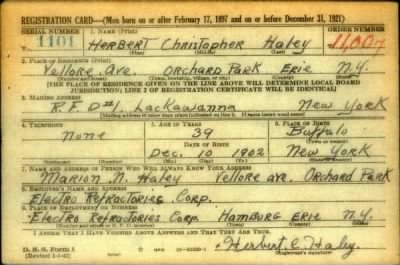 REGISTRATION CARD—(Men born on or after February 17, 1897 and on or before December 31, 1921)
SERIAL NUMBER 1. NAME (Print) ORDER NUMBER
1101 Herbert Christopher Haley 11,007
(First) (Middle) (Last)
2. PLACE OF RESIDENCE (Print)
Vellore Ave. Orchard Park Erie N.Y.
(Number and street) (Town, township, village, or city) (County) (State)
[THE PLACE OF RESIDENCE GIVEN ON THE LINE ABOVE WILL DETERMINE LOCAL BOARD
JURISDICTION; LINE 2 OF REGISTRATION CERTIFICATE WILL BE IDENTICAL]
3. MAILING ADDRESS
R.F.D#1. Lackawanna New York
[Mailing address if other than place indicated on line 2. If same insert word same]
4. TELEPHONE 5. AGE IN YEARS 6. PLACE OF BIRTH
None 39 Buffalo
DATE OF BIRTH
Dec. 10 1902 New York
7. NAME AND ADDRESS OF PERSON WHO WILL ALWAYS KNOW YOUR ADDRESS
Marion N. Haley Vellore Ave, Orchard Park
8. EMPLOYER'S NAME AND ADDRESS
Electro Refractories Corp.
9. PLACE OF EMPLOYMENT OR BUSINESS
Electro Refractories Corp. Hamburg Erie N.Y.
I AFFIRM THAT I HAVE VERIFIED ABOVE ANSWERS AND THAT THEY ARE TRUE.
D. S. S. Form 1 Herbert C. Haley
(Registrant's signature)